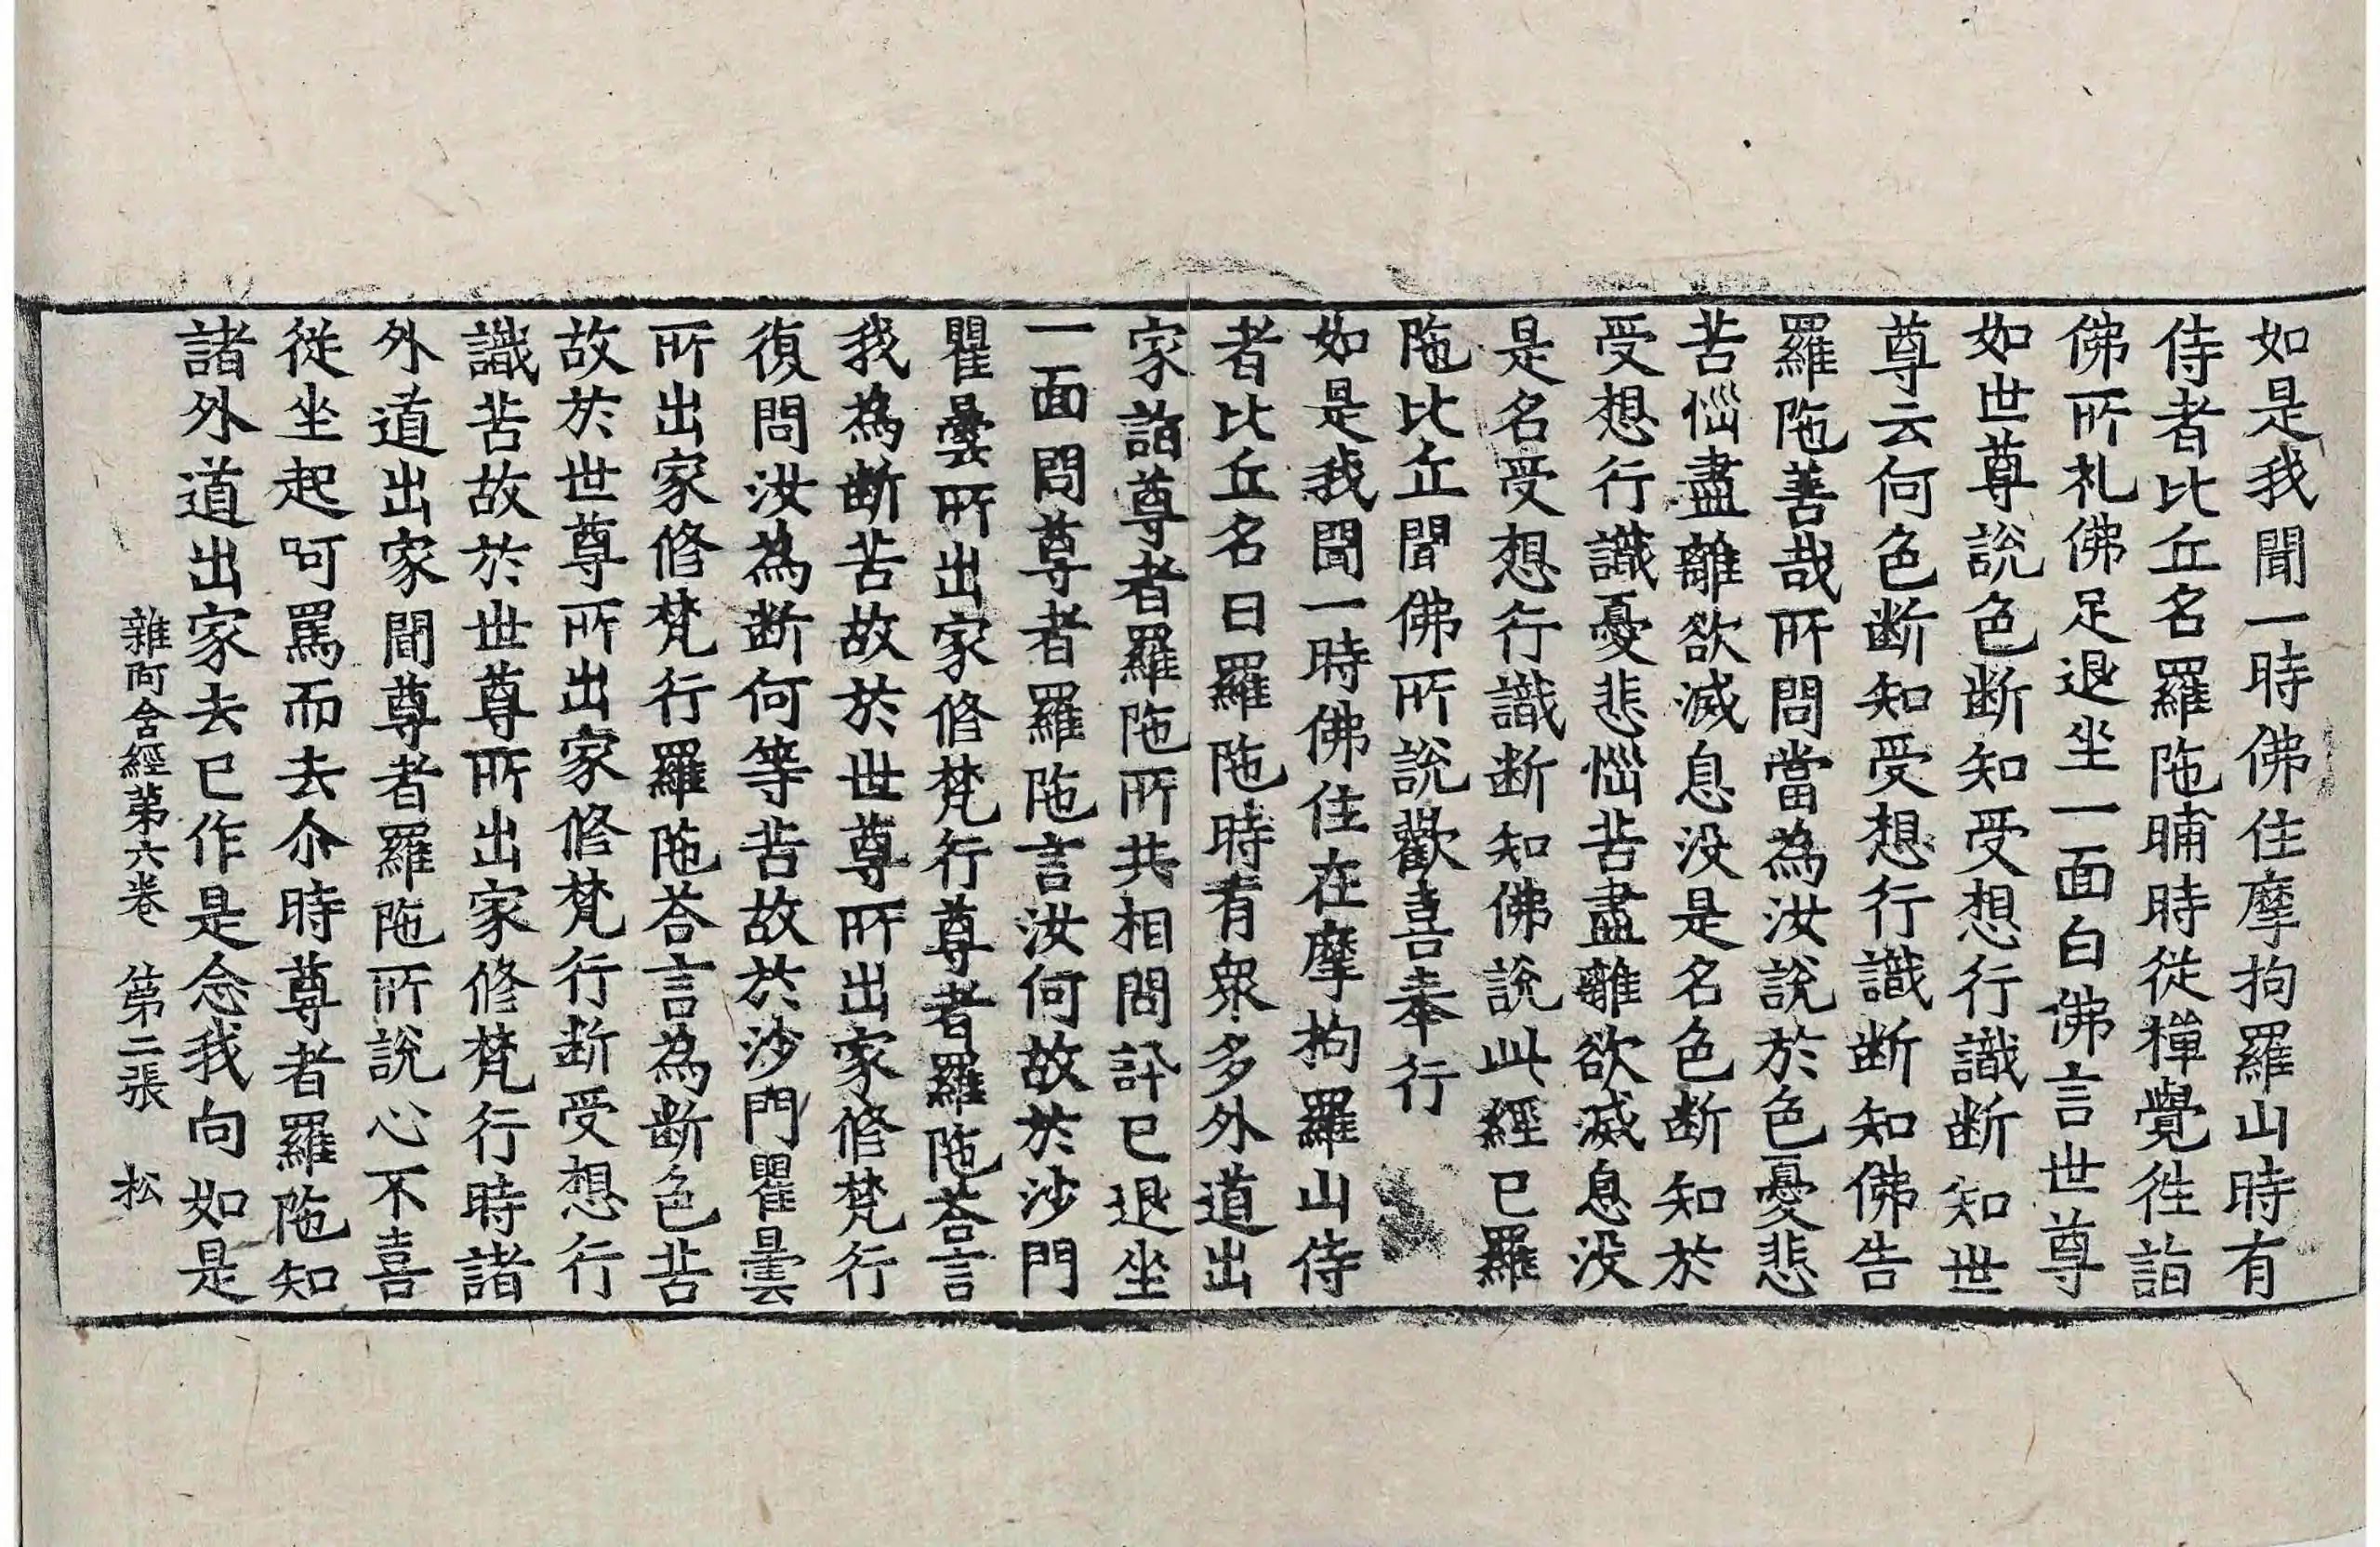 如是我聞一時佛住摩拘羅山時有
侍者比丘名羅陁晡時從禪覺徃詣
佛所礼佛足退坐一面白佛言世尊
如世尊說色断知受想行識断知世
尊云何色断知受想行識断知佛告
羅陁善哉所問當為汝說於色憂悲
苦惱盡離欲滅息没是名色断知於
受想行識憂悲惱苦盡離欲滅息没
是名受想行識断知佛說此經已羅
陁比丘聞佛所說歡喜奉行
如是我聞一時佛住在摩拘羅山侍
者比丘名曰羅陁時有衆多外道出
家詣尊者羅陁所共相問訊已退坐
一面問尊者羅陁言汝何故於沙門
瞿曇所出家修梵行尊者羅陁荅言
我為断苦故於世尊所出家修梵行
復問汝為断何等苦故於沙門瞿曇
所出家修梵行羅陁荅言為断色苦
故於世尊所出家修梵行断受想行
識苦故於世尊所出家修梵行時諸
外道出家聞尊者羅陁所說心不喜
從坐起呵罵而去尒時尊者羅陁知
諸外道出家去已作是念我向如是
雜阿含經第六卷 第二張 松